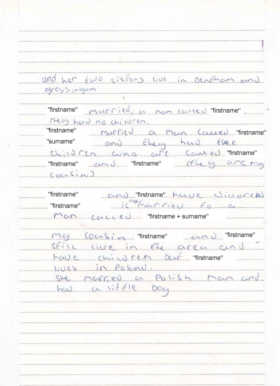 and her two sisters live in Denham and
"firstname" married a man called "firstname".
They had no children.
"firstname" married a man called "firstname"
"surname" and they had three
children who are called "firstname"
"firstname" and "firstname" (they are my
cousins)
"firstname" and "firstname" have divorced
"firstname" is married to a
man called "firstname + surname"
my cousins "firstname" and "firstname"
still live in the area and
have children but "firstname"
lives in Poland.
She married a Polish man and
had a little boy